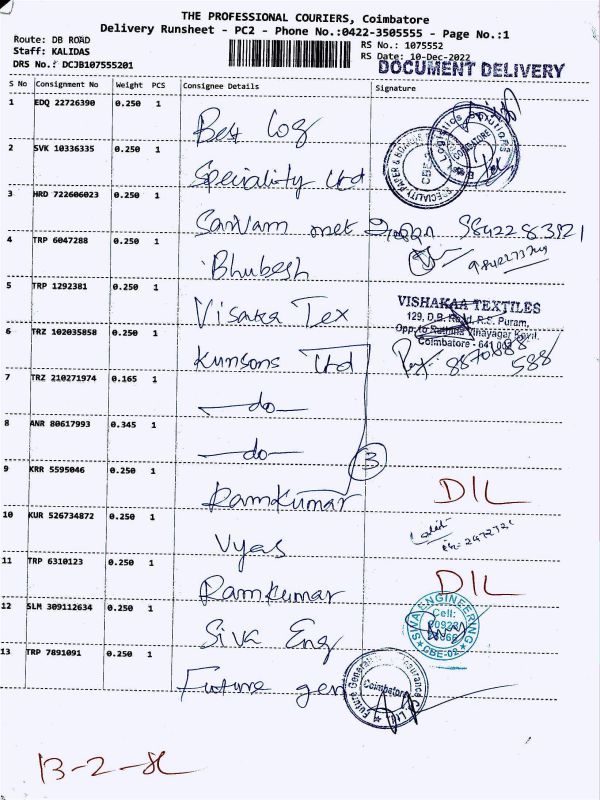 THE PROFESSIONAL COURIERS, Coimbatore
Delivery Runsheet - PC2 - Phone No.:0422-3505555 - Page No.:1
Route: DB ROAD
Staff: KALIDAS
DRS No.: DCJB107555201
RS No.: 1075552
RS Date: 10-Dec-2022
DOCUMENT DELIVERY
S No Consignment No Weight PCS Consignee Details Signature
1 EDQ 22726390 0.250 1 Best Log
2 SVK 10336335 0.250 1 Speciality Ltd
3 HRD 722606023 0.250 1 Sarvam met
4 TRP 6047288 0.250 1 Bhubesh
5 TRP 1292381 0.250 1 Visaka Tex
VISHAKAA TEXTILES
129, D.B. Road, R.S. Puram,
Opp. to Rathina Vinayagar Kovil,
Coimbatore - 641 002
6 TRZ 102035858 0.250 1 Kunsons Ltd
7 TRZ 210271974 0.165 1 do
8 ANR 80617993 0.345 1 do
3
9 KRR 5595046 0.250 1 Ramkumar DIL
10 KUR 526734872 0.250 1 Vyas
11 TRP 6310123 0.250 1 Ramkumar DIL
12 SLM 309112634 0.250 1 Siva Eng
SIWA ENGINEERING
Cell:
CBE-02
13 TRP 7891091 0.250 1 Future gen
Coimbatore
13-2-